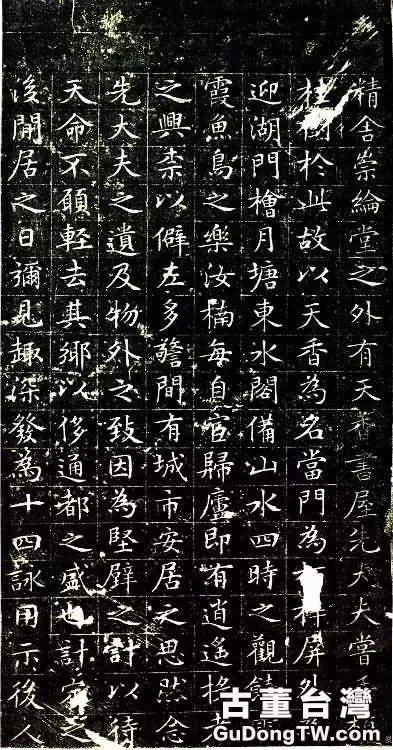 精舍崇綸堂之外有天香書屋先大夫嘗
桂樹於此故以天香為名當門為屏外
迎湖門檜月塘東水閣備山水四時之觀饒
霞魚鳥之樂汝楠每自官歸廬即有逍遙
之興柰以僻左多警間有城市安居之思然念
先大夫之遺及物外之致因為堅壁之計以待
天命不願輕去其鄉以侈通都之盛也計定之
後閒居之日彌見趣深發為十四詠用示後人
古董台灣
GuDongTW.com